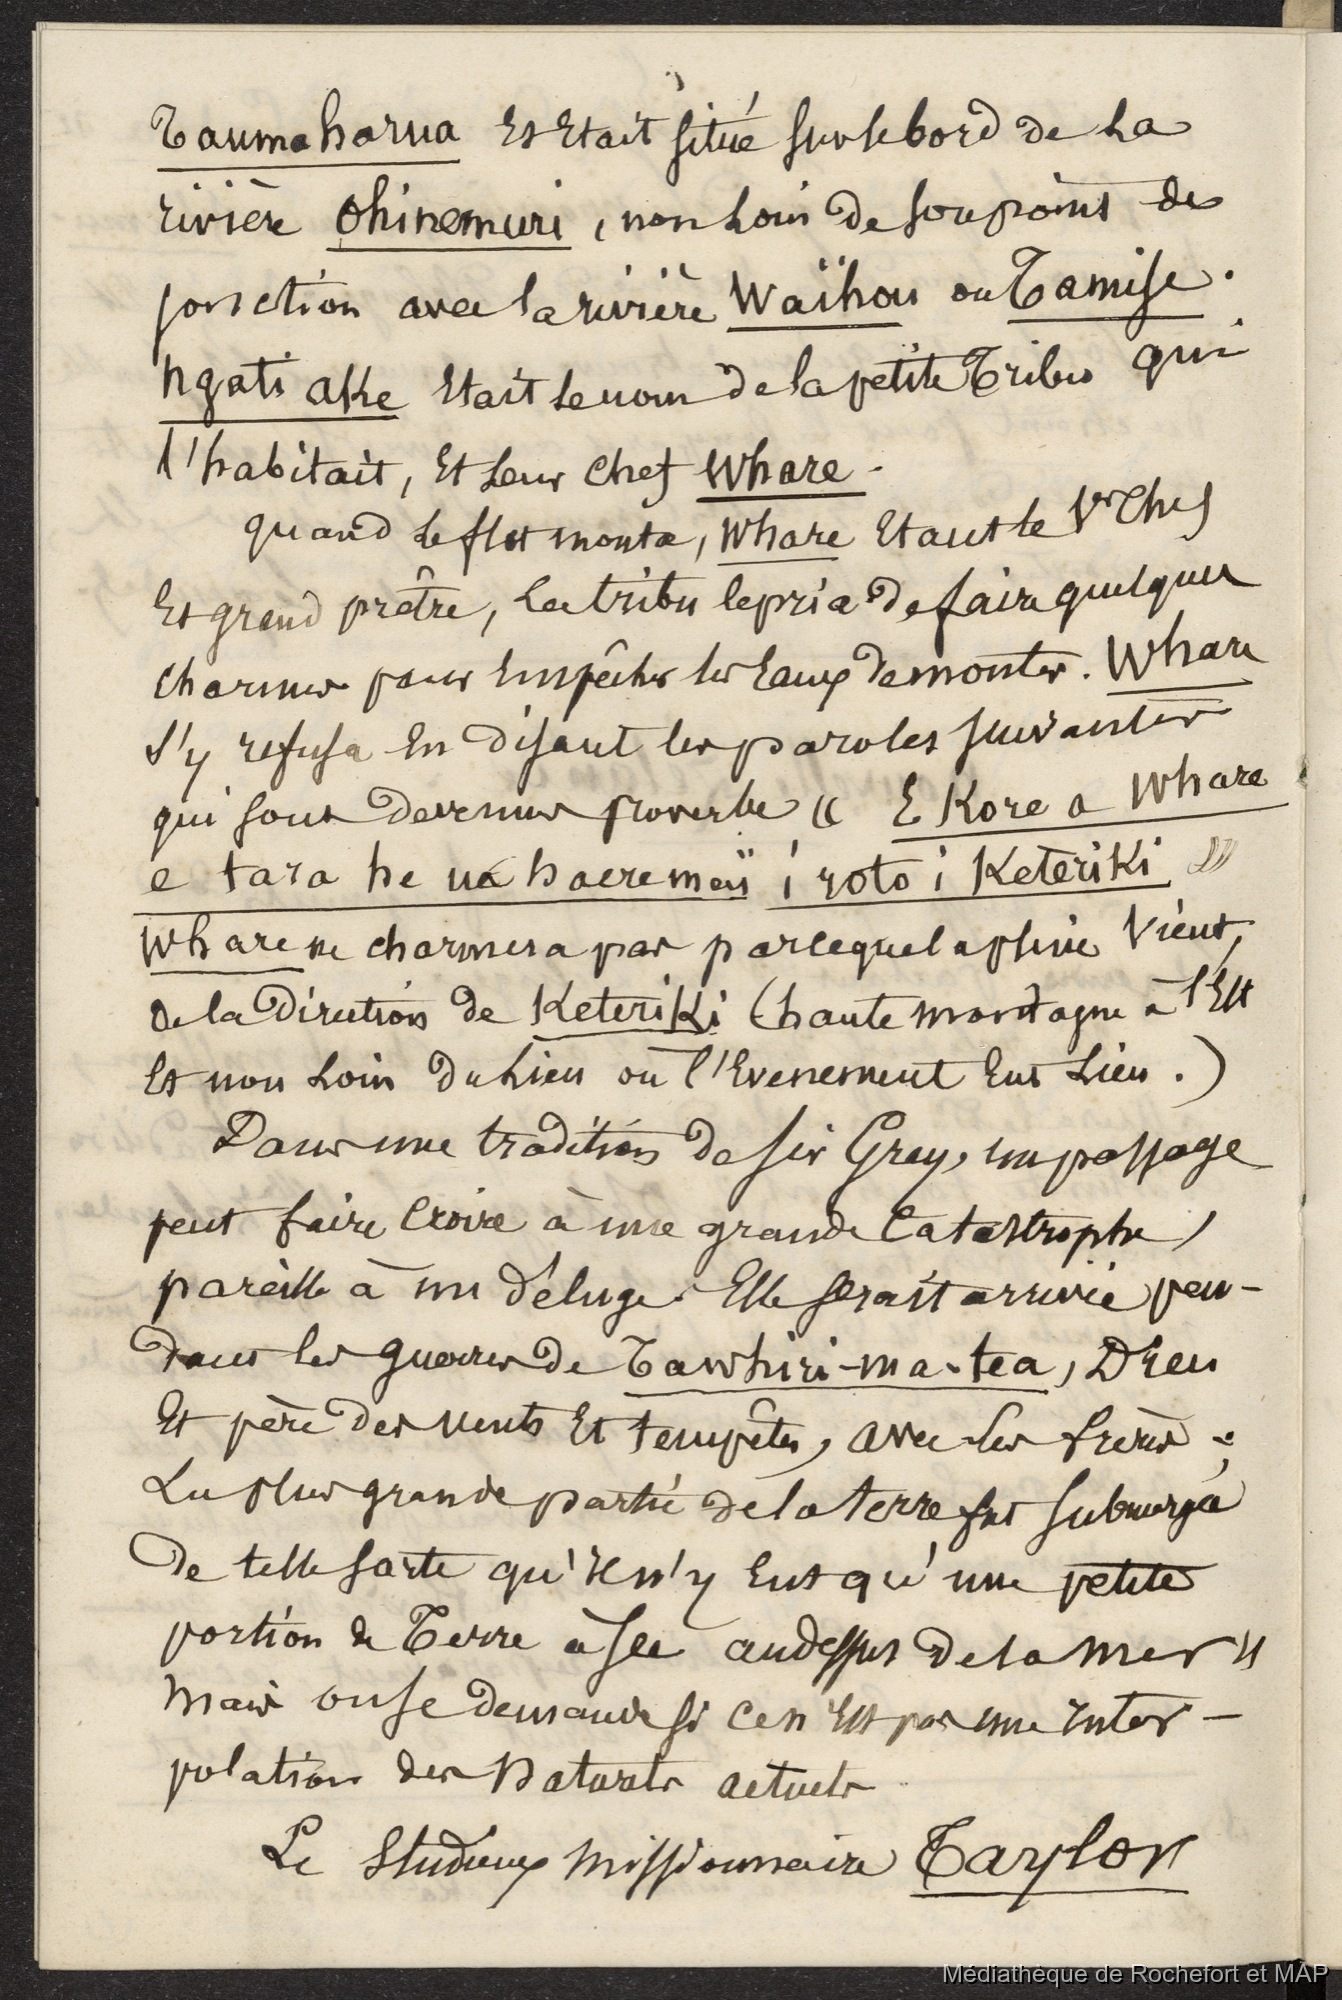 Taumaharua et était situé sur le bord de la
rivière Ohinemuri, non loin de son point de
jonction avec la rivière Waïhou ou Tamise.
ngati ake était le nom de la petite Tribu qui
l'habitait, et leur chef Whare.
quand le flot monta, Whare étant le Vr Chef
et grand prêtre, la tribu le pria de faire quelques
charmes pour empêcher les eaux de monter. Whare
s'y refusa en disant les paroles suivantes
qui sont devenues proverbe « E Kore a Whare
e tara he ua haere maï i roto i Keteriki »
Whare ne charmera pas parceque la pluie vient,
de la direction de Keteriki (haute montagne à l'Est
et non loin du lieu où l'évenement eut lieu.)
Dans une tradition de sir Grey, un passage
peut faire croire à une grande catastrophe,
pareille à un déluge. Elle serait arrivée pen-
dant les guerres de Tawhiri-ma-tea, Dieu
et père des vents et tempêtes, avec les frères :
La plus grande partie de la terre fut submergée
de telle sorte qu'il n'y eut qu'une petite
portion de Terre à sec au dessus de la mer »
mais on se demande si ce n'est pas une inter-
polation des naturels actuels
Le studieux missionnaire Taylor
Médiathèque de Rochefort et MAP